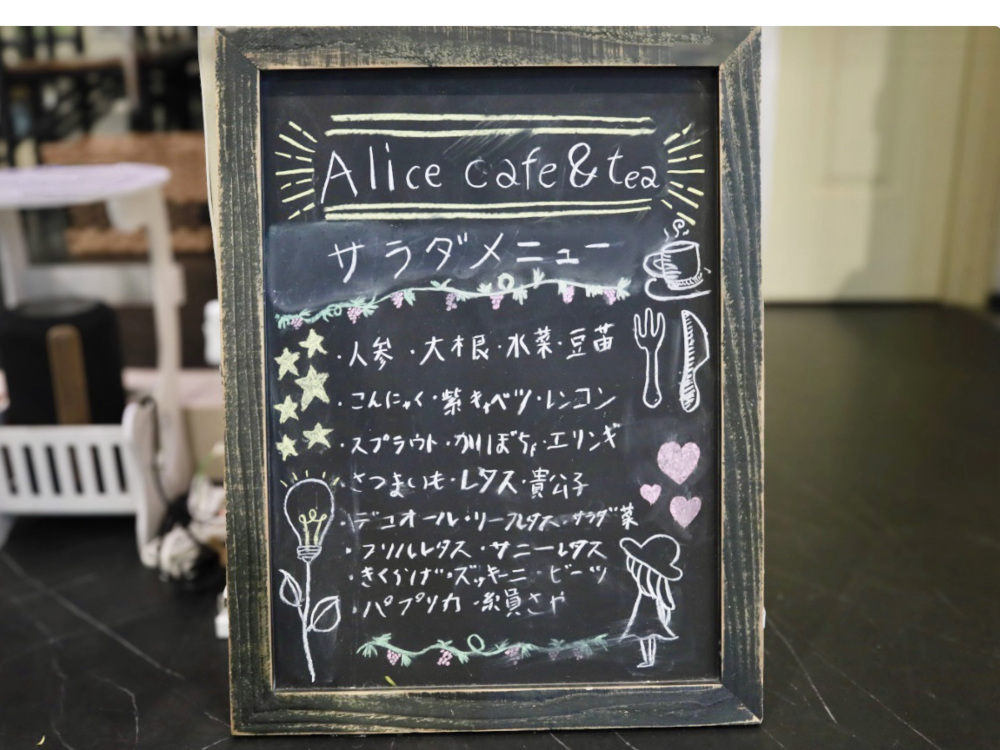 Alice cafe&tea
サラダメニュー
・人参・大根・水菜・豆苗
・こんにゃく・紫キャベツ・レンコン
・スプラウト・かぼちゃ・エリンギ
・さつまいも・レタス・貴公子
・デコオール・リーフレタス・サラダ菜
・フリルレタス・サニーレタス
・きくらげ・ズッキーニ・ビーツ
・パプリカ・絹さや